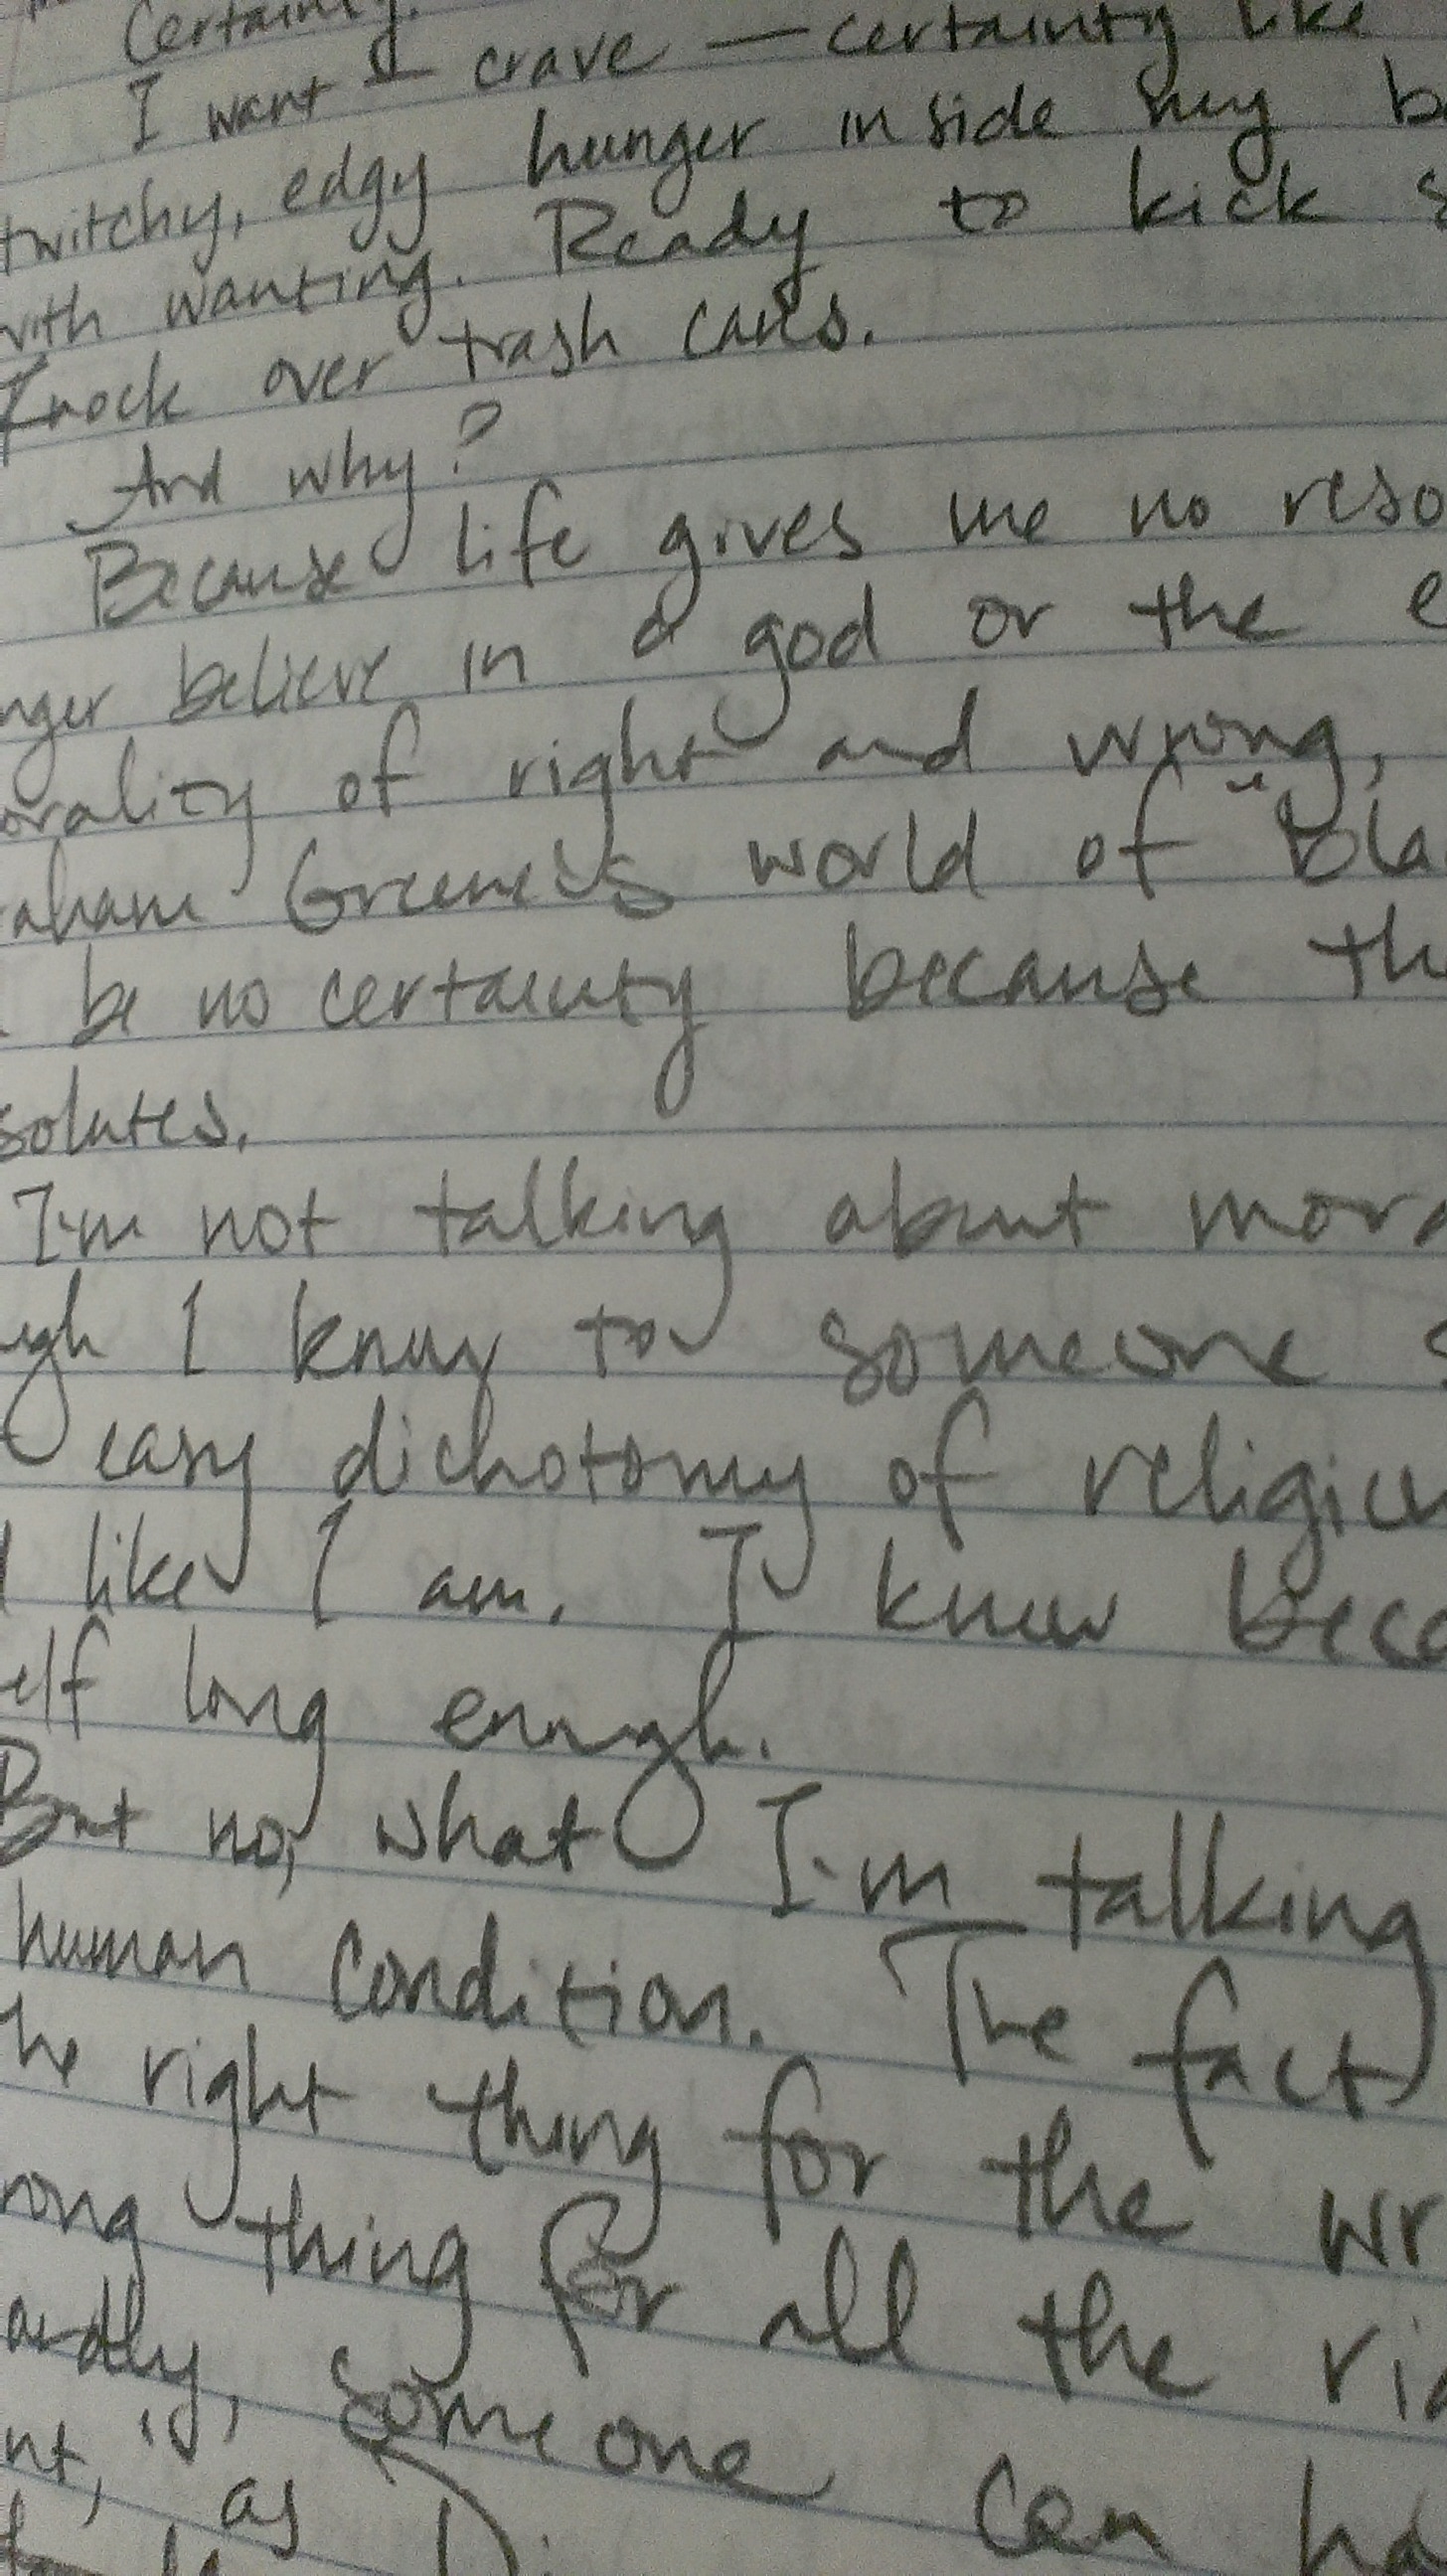 Certainty.
I want — crave — certainty like
twitchy, edgy hunger inside my b
with wanting. Ready to kick s
Knock over trash cans.
And why?
Because life gives me no reso
nger believe in a god or the e
orality of right and wrong,
raham Greene's world of "bla
be no certainty because the
solutes.
I'm not talking about mora
ugh I know to someone s
easy dichotomy of religiou
like I am. I know beca
elf long enough.
But no, what I'm talking
human condition. The fact
he right thing for the wr
rong thing for all the rig
ardly, someone can ha
nt," as